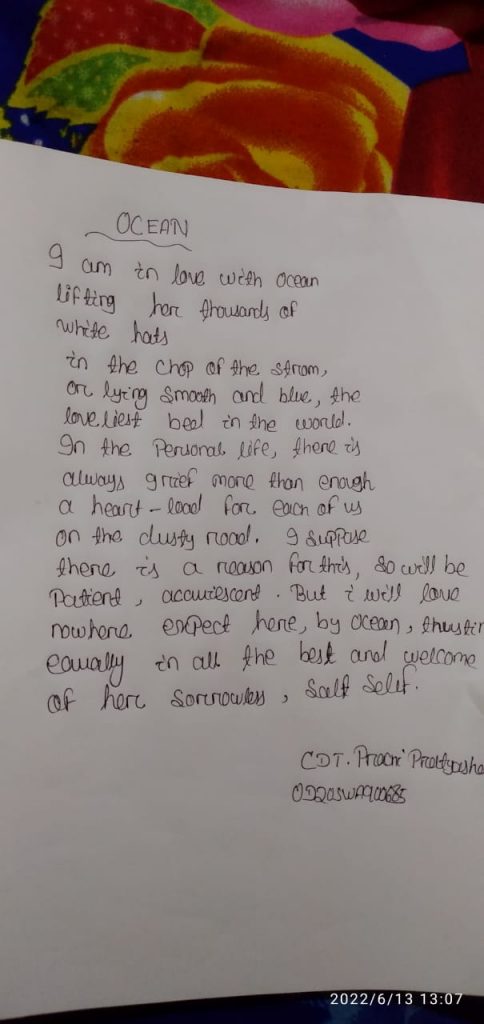 OCEAN
I am in love with ocean
lifting her thousands of
white hats
in the chop of the strom,
or lying smooth and blue, the
loveliest bed in the world.
In the Personal life, there is
always grief more than enough
a heart-load for each of us
on the dusty road. I suppose
there is a reason for this, so will be
Patient, acquiescent. But i will love
nowhere expect here, by ocean, thustin
equally in all the best and welcome
of her sorrowless, salt self.
CDT. Prachi
2022/6/13 13:07